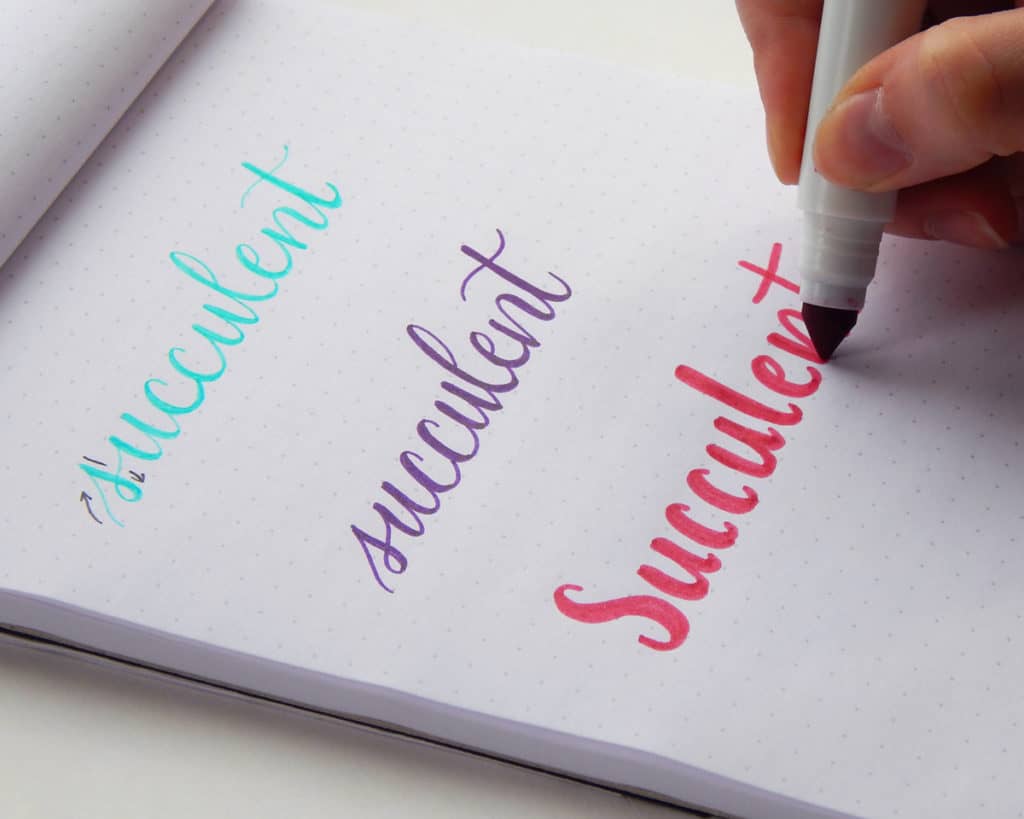 succulent
succulent
Succulent